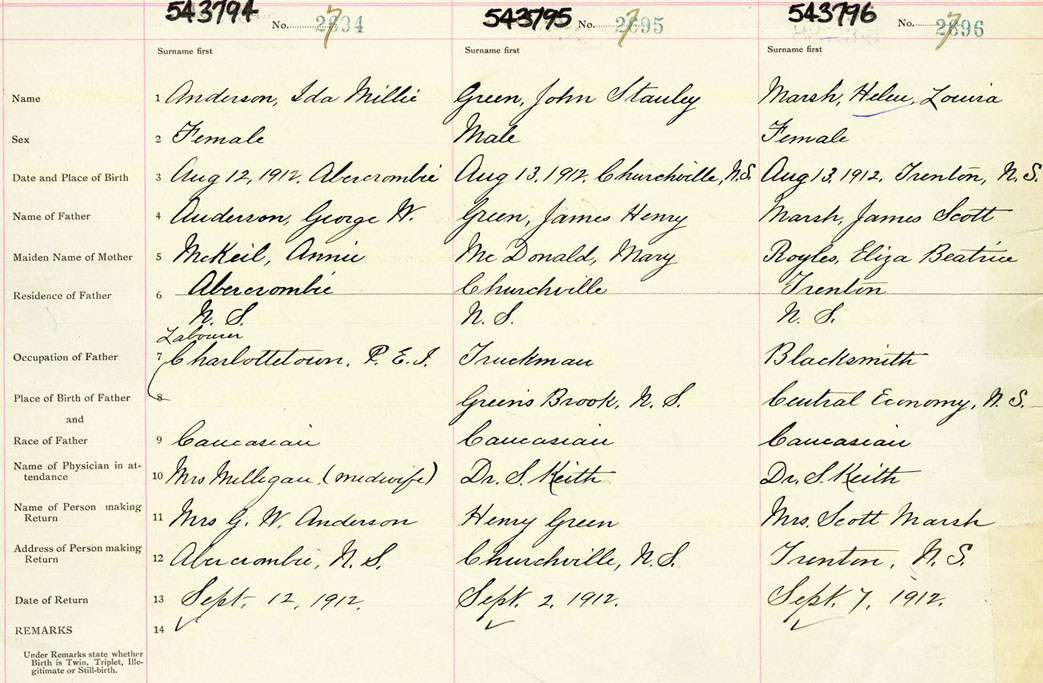 543794 No. 2834 543795 No. 2695 543796 No. 2896
Surname first Surname first Surname first
Name 1 Anderson, Ida Millie Green, John Stanley Marsh, Helen, Louisa
Sex 2 Female Male Female
Date and Place of Birth 3 Aug 12, 1912. Abercrombie Aug 13, 1912. Churchville, N.S. Aug 13, 1912. Trenton, N.S.
Name of Father 4 Anderson, George W. Green, James Henry Marsh, James Scott
Maiden Name of Mother 5 McKeil, Annie McDonald, Mary Royles, Eliza Beatrice
Residence of Father 6 Abercrombie Churchville Trenton
N.S. N.S. N.S.
Labourer
Occupation of Father 7 Charlottetown, P.E.I. Truckman Blacksmith
Place of Birth of Father 8 Greens Brook, N.S. Central Economy, N.S.
and
Race of Father 9 Caucasian Caucasian Caucasian
Name of Physician in at-
tendance 10 Mrs Milligan (midwife) Dr. S. Keith Dr. S. Keith
Name of Person making
Return 11 Mrs G. W. Anderson Henry Green Mrs. Scott Marsh
Address of Person making
Return 12 Abercrombie, N.S. Churchville, N.S. Trenton, N.S.
Date of Return 13 Sept. 12, 1912. Sept. 2, 1912. Sept. 7, 1912.
REMARKS 14
Under Remarks state whether
Birth is Twin, Triplet, Ille-
gitimate or Still-birth.